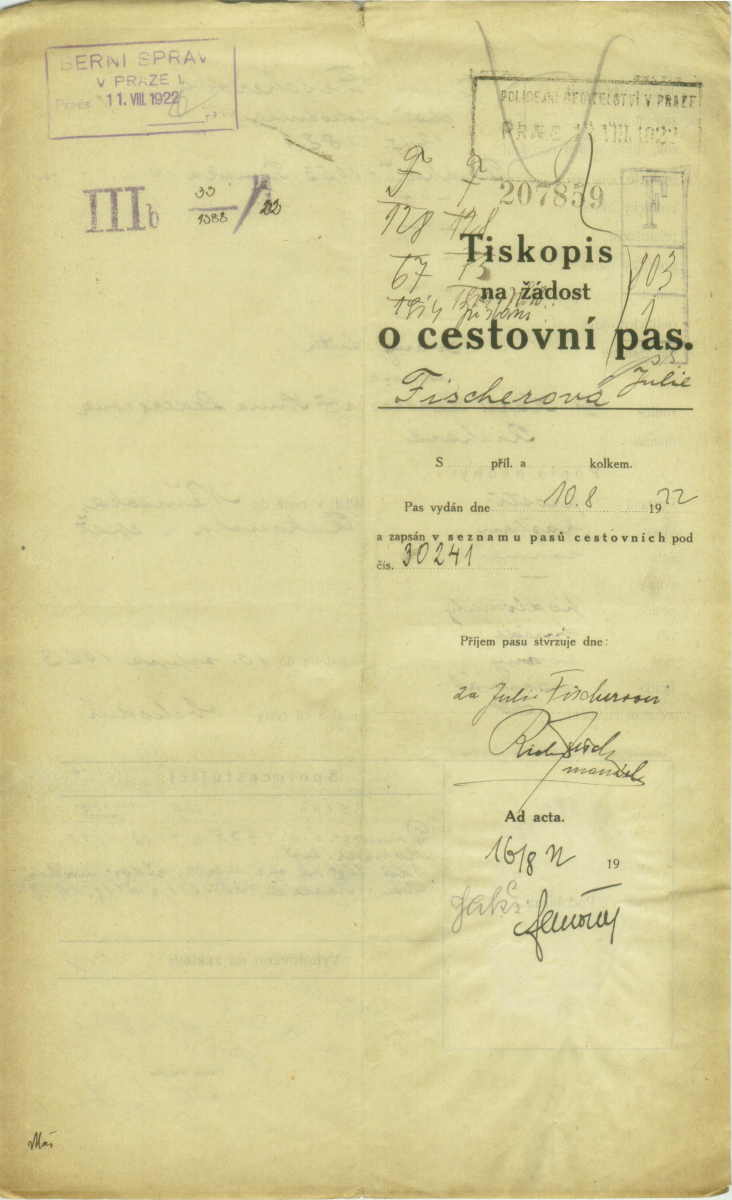 BERNÍ SPRÁV
V PRAZE I.
11. VIII. 1922
IIIb 33/1088/22
POLICEJNÍ ŘEDITELSTVÍ V PRAZE
VIII. 1922
207859
F F
128 128
67 13
F
103
1
Tiskopis
na žádost
o cestovní pas.
Fischerová Julie
S příl. a kolkem.
Pas vydán dne 10.8 1922
a zapsán v seznamu pasů cestovních pod
čís. 30241
Příjem pasu stvrzuje dne:
za Julii Fischerovou
Ad acta.
16/8 22 19